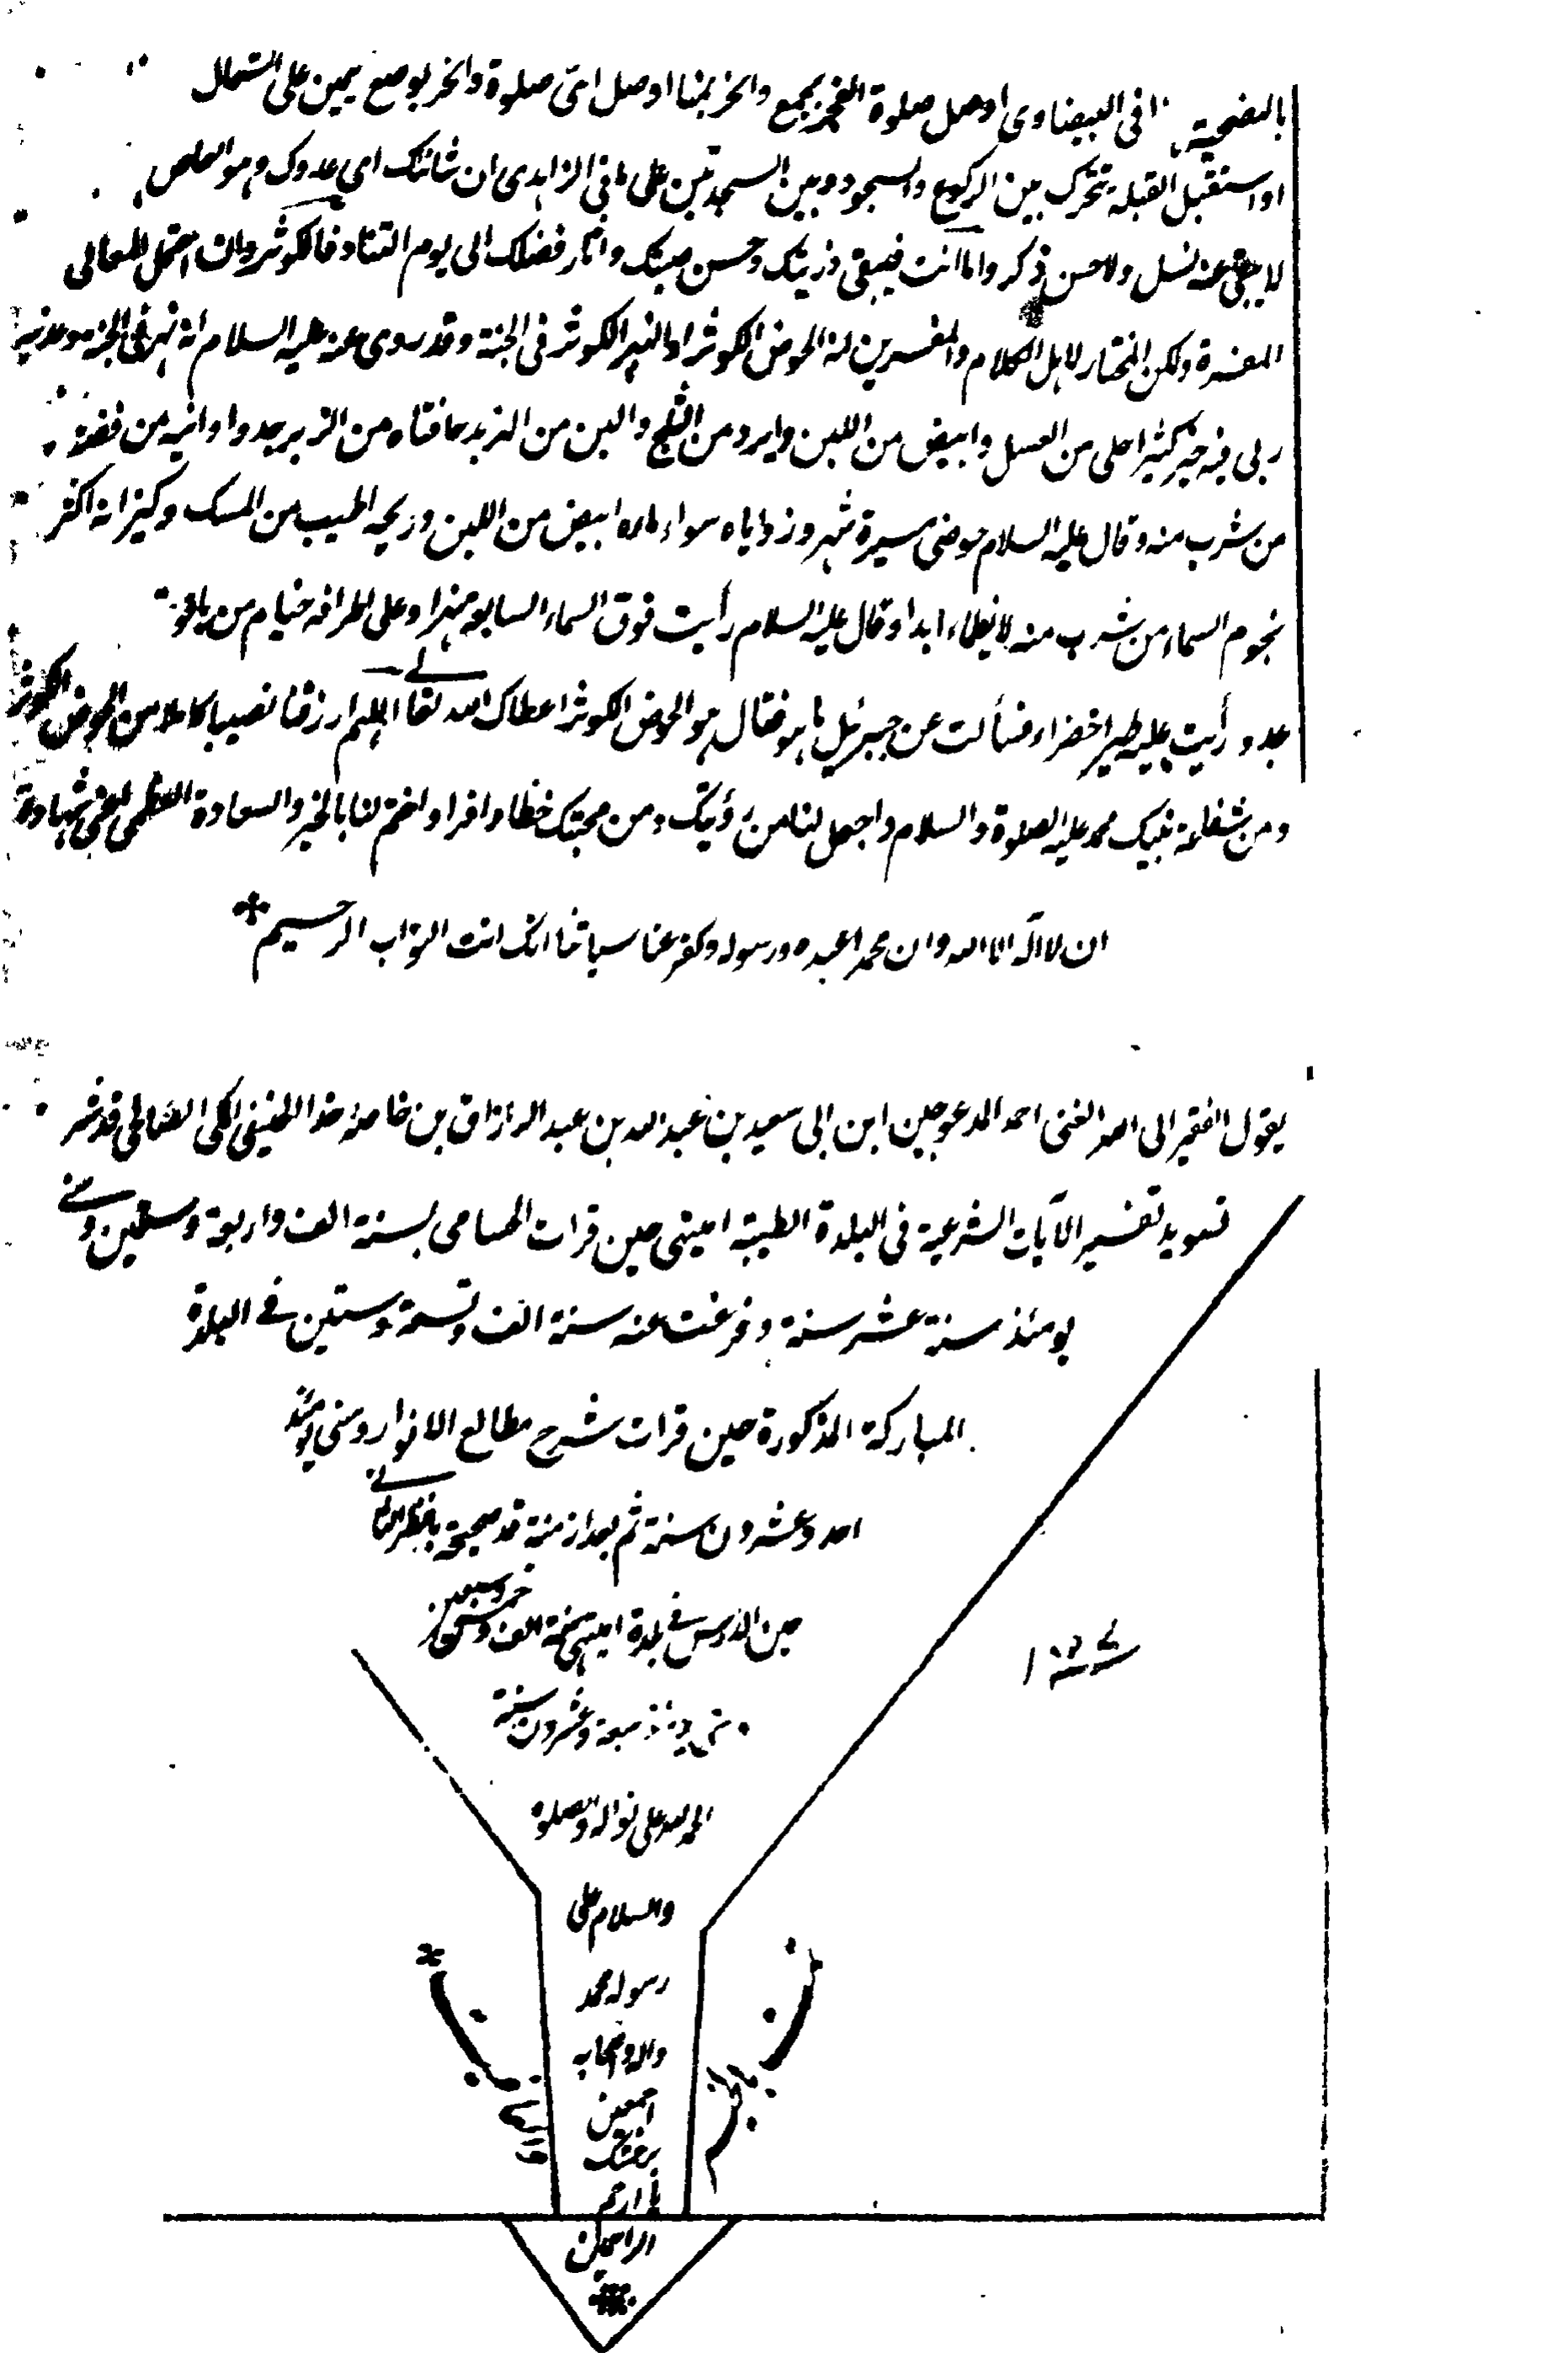 بالتضحية افى البيضاوى او صل صلوة الفجر بجمع وانحر بمنا او صل اى صلوة وانحر بوضع يمين على الشمال
او استقبل القبلة بتحرك بين الركوع والسجود وبين السجدتين على ما فى الزاهدى ان شانئك اى عدوك هو
لا يبقى عنه نسل ولا حسن ذكر واما انت فيبقى ذريتك وحسن صيتك واثار فضلك الى يوم التناد فالكوثر وان احتمل المعانى
المفسرة ولكن المختار لاهل الكلام والمفسرين انه الحوض الكوثر او النهر الكوثر فى الجنة وقد روى عنه عليه السلام انه نهر فى الجنة وعدنيه
ربى فيه خير كثير احلى من العسل وابيض من اللبن وابرد من الثلج والين من الزبد حافتاه من الزبرجد واوانيه من فضة
من شرب منه وقال عليه السلام حوضى مسيرة شهر وزواياه سواء ماءه ابيض من اللبن وريحه اطيب من المسك وكيزانه اكثر
نجوم السماء من شرب منه لا يظماء ابدا وقال عليه السلام رأيت فوق السماء السابعة نهرا وعلى اطرافه خيام من ياقوت
رأيت عليه طيرا خضراء فسألت عن جبرئيل ما هو فقال هو الحوض الكوثر اعطاك الله تعالى اللهم ارزقنا نصيبا كاملا من الحوض الكوثر
ومن شفاعة نبيك محمد عليه الصلوة والسلام واجعل لنا من رؤيتك ومن محبتك حظا وافرا واختم لنا بالخير والسعادة العظمى اعنى شهادة
ان لا اله الا الله وان محمدا عبده ورسوله وكفر عنا سياتنا انك انت التواب الرحيم
يقول الفقير الى الله الغنى احمد المدعو جين ابن ابى سعيد بن عبد الله بن عبد الرزاق بن خاصه خدا الحنفى المكى الصالحى قد شر
تسويد تفسير الآيات الشرعية فى البلدة الطيبة اميتى حين قرات الحسامى لسنة الف واربعة وستين وسنى
يومئذ ستة عشر سنة وفرغت عنه سنة الف وتسعة وستين فى البلدة
المباركة المذكورة حين قرات شرح مطالع الانوار وسنى يومئذ
احد وعشرون سنة ثم بعد ازمنة قد صححته بالنظر الثانى
حين الدرس فى بلدة اميتى سنة الف وخمس وسبعين
وسنى يومئذ سبعة وعشرون سنة
الحمد لله على نواله والصلوة
والسلام على
رسوله محمد
واله واصحابه
اجمعين
برحمتك
يا ارحم
الراحمين